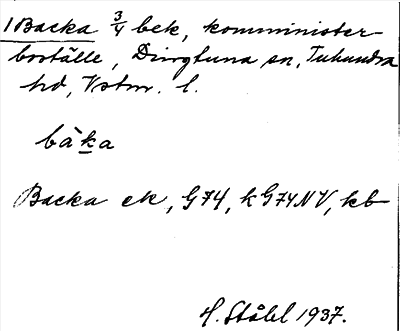 1 Backa 3/4 bek, komminister-
boställe, Dingtuna sn, Tuhundra
hd, Vstm. l.
bàka
Backa ek, G74, kG74NV, kb
H. Ståhl 1937.